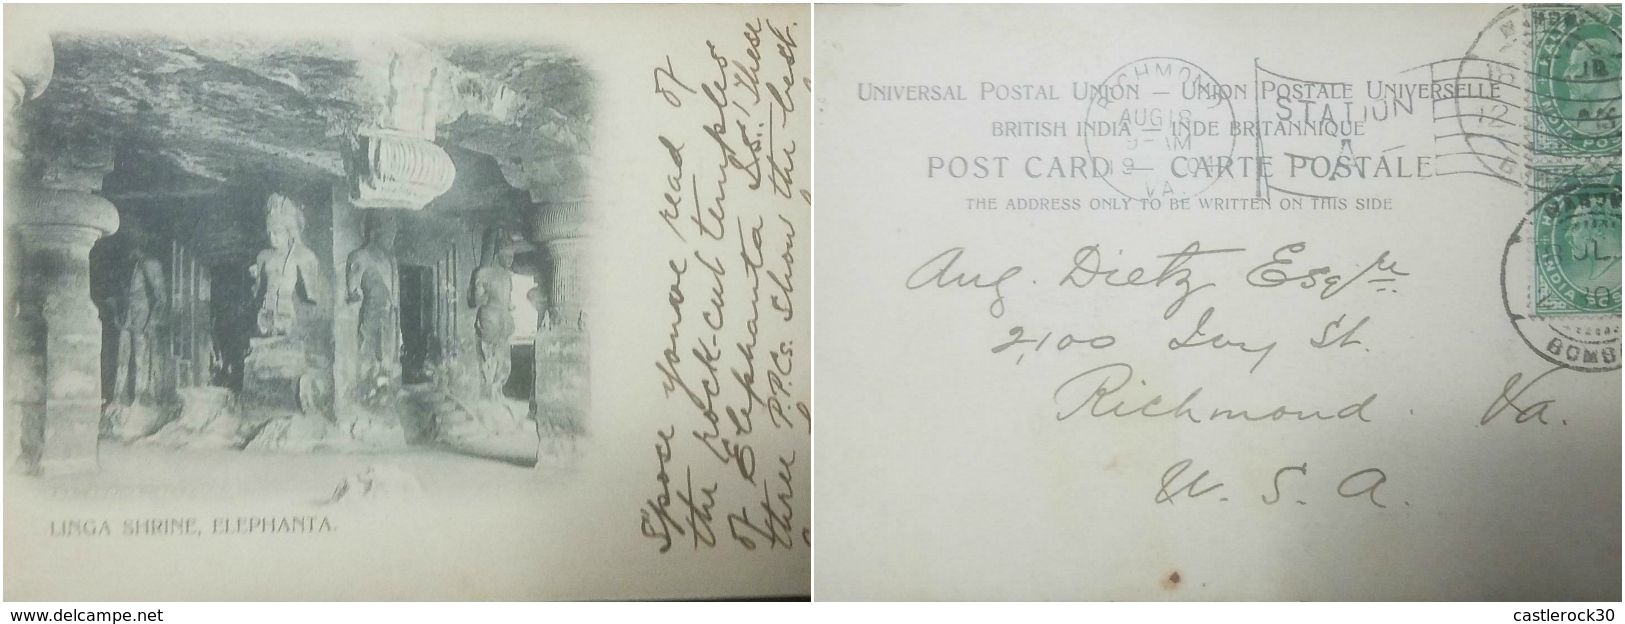 LINGA SHRINE, ELEPHANTA.
S'pose you've read of
the rock-cut temples
of Elephanta Is! These
three P.P.Cs. show the best
UNIVERSAL POSTAL UNION — UNION POSTALE UNIVERSELLE
BRITISH INDIA — INDE BRITANNIQUE
POST CARD — CARTE POSTALE
THE ADDRESS ONLY TO BE WRITTEN ON THIS SIDE
RICHMOND
AUG 18
9-AM
VA.
STATION
A
HALF
INDIA POS
BOMB
Aug. Dietz Esqre
2,100 Ivy St.
Richmond. Va.
U. S. A.
www.delcampe.net
castlerock30